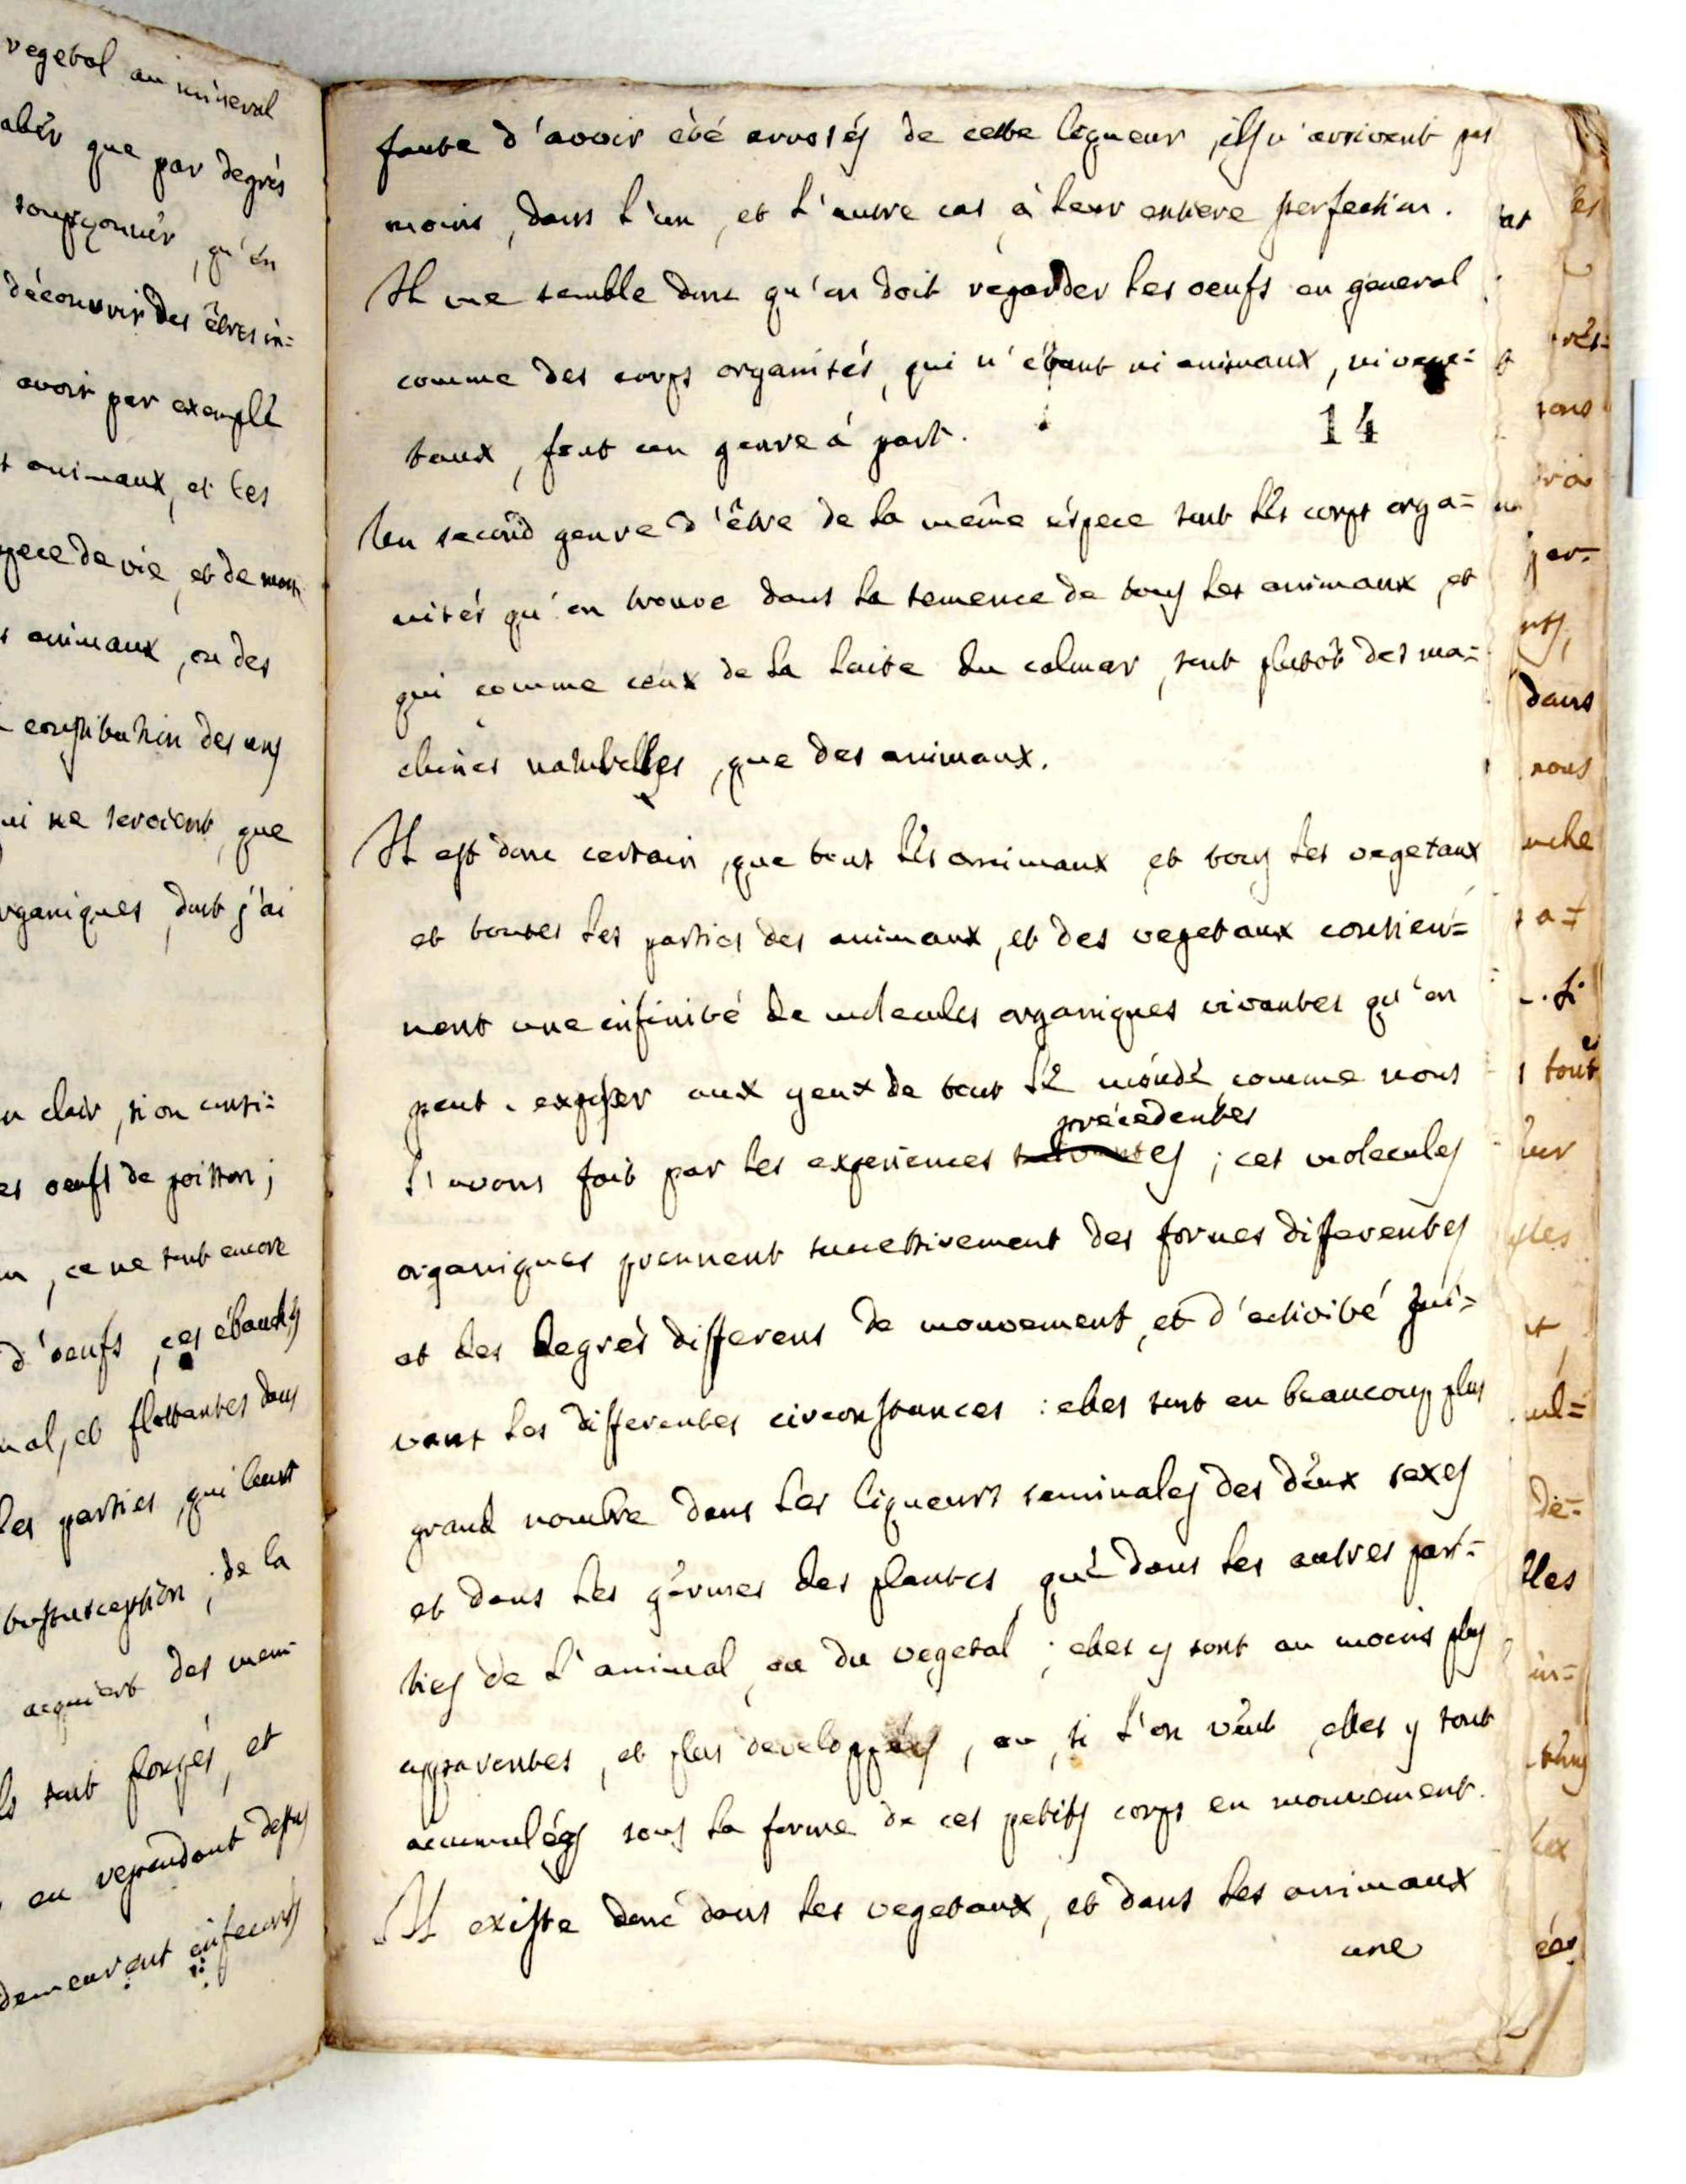 vegetal au mineral
que par degrés
soupçonner, qu'en
découvrir des êtres in=
avoir par exemple
animaux, et les
pece de vie, et de mou
animaux, ou des
constitution des uns
ui ne seroient, que
rganiques, dont j'ai
clair, si on consi=
es oeufs de poisson;
, ce ne sont encore
d'oeufs, ces ébauches
al, et flottantes dans
les parties, qui leurs
; de la
acquiert des mem
sont plongés, et
en rependant dessus
demeurent infeconds
faute d'avoir été arrosés de cette liqueur, ils n'arrivent pas
moins, dans l'un, et l'autre cas à leur entiere perfection.
Il me semble donc qu'on doit regarder les oeufs en general
comme des corps organisés, qui n'étant ni animaux, ni vege=
taux, font un genre à part.
14
Un second genre d'être de la même éspece sont lès corps orga=
nisés qu'on trouve dans la semence de tous les animaux, et
qui comme ceux de la laite du calmar, sont plutôt des ma=
chines naturelles, que des animaux.
Il est donc certain, que tous lès animaux et tous les vegetaux
et toutes les parties des animaux, et des vegetaux contien=
nent une infinité de molecules organiques vivantes qu'on
peut exposer aux yeux de tout lé móndé, comme nous
précédentes
l'avons fait par les experiences suivantes; ces molecules
organiques prennent successivement des formes differentes
et des degrés differens de mouvement, et d'activité sui=
vant les differentes circonstances: elles sont en beaucoup plus
grand nombre dans les liqueurs seminales des deux sexes
et dans les gérmes des plantes, qué dans les autres par=
ties de l'animal, ou du vegetal; elles y sont au moins plus
apparentes, et plus developpées, ou, si l'on veut, elles y sont
accumulées sous la forme de ces petits corps en mouvement.
Il existe donc dans les vegetaux, et dans les animaux
une
dans
nous
tout